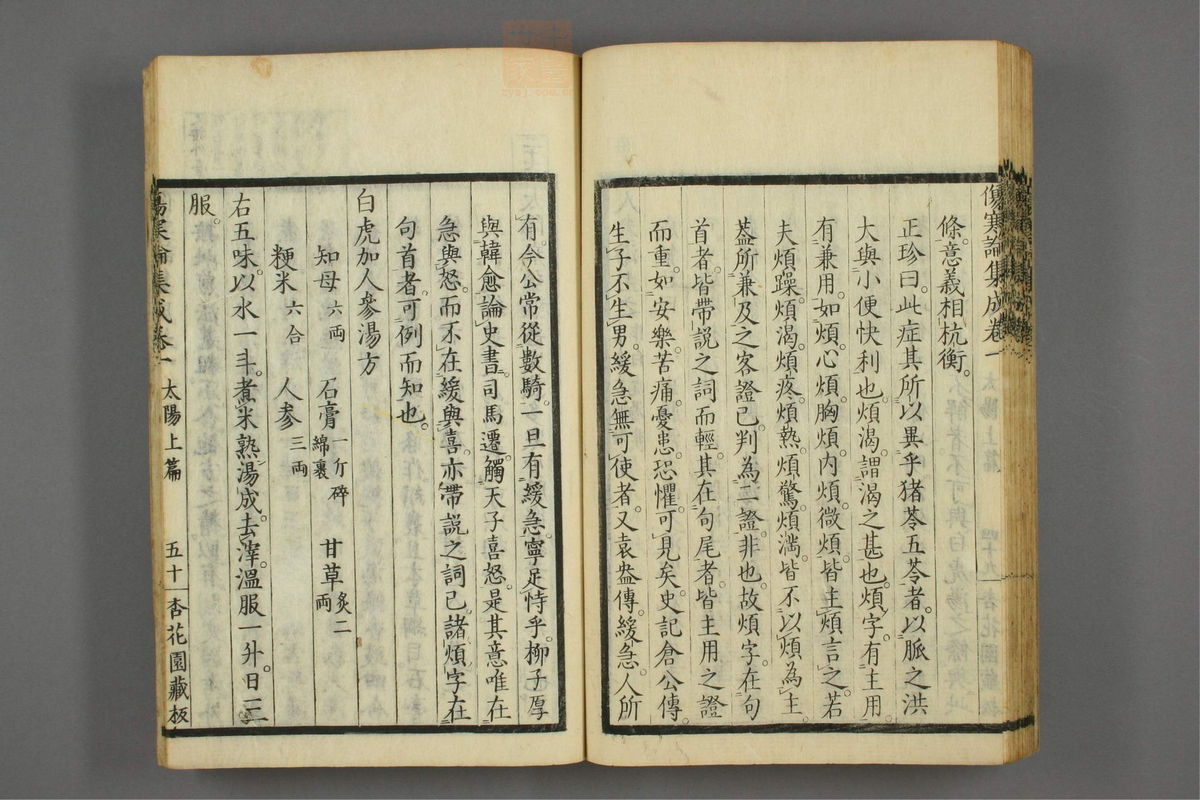 傷寒論集成卷一
條。意義相杭衡。
正珍曰。此症其所以異乎猪苓五苓者。以脈之洪
大與小便快利也。煩渴。謂渴之甚也。煩字。有主用。
有兼用。如煩心煩胸煩内煩微煩。皆主煩言之。若
夫煩躁。煩渴。煩疼。煩熱。煩驚。煩滿。皆不以煩為主。
葢所兼及之客證已。判為二證。非也。故煩字在句
首者。皆帶説之詞而輕。其在句尾者。皆主用之證
而重。如安樂苦痛。憂患恐懼。可見矣。史記倉公傳。
生子不生男。緩急無可使者。又袁盎傳。緩急人所
有。今公常從數騎。一旦有緩急。寧足恃乎。柳子厚
與韓愈論史書。司馬遷。觸天子喜怒。是其意唯在
急與怒。而不在緩與喜。亦帶説之詞已。諸煩字在
句首者。可例而知也。
白虎加人參湯方
知母六両 石膏一斤碎綿裹 甘草炙二両
粳米六合 人参三両
右五味。以水一斗。煮米熟湯成。去滓。溫服一升。日三
服。
傷寒論集成卷一 太陽上篇 五十一 杏花園藏板